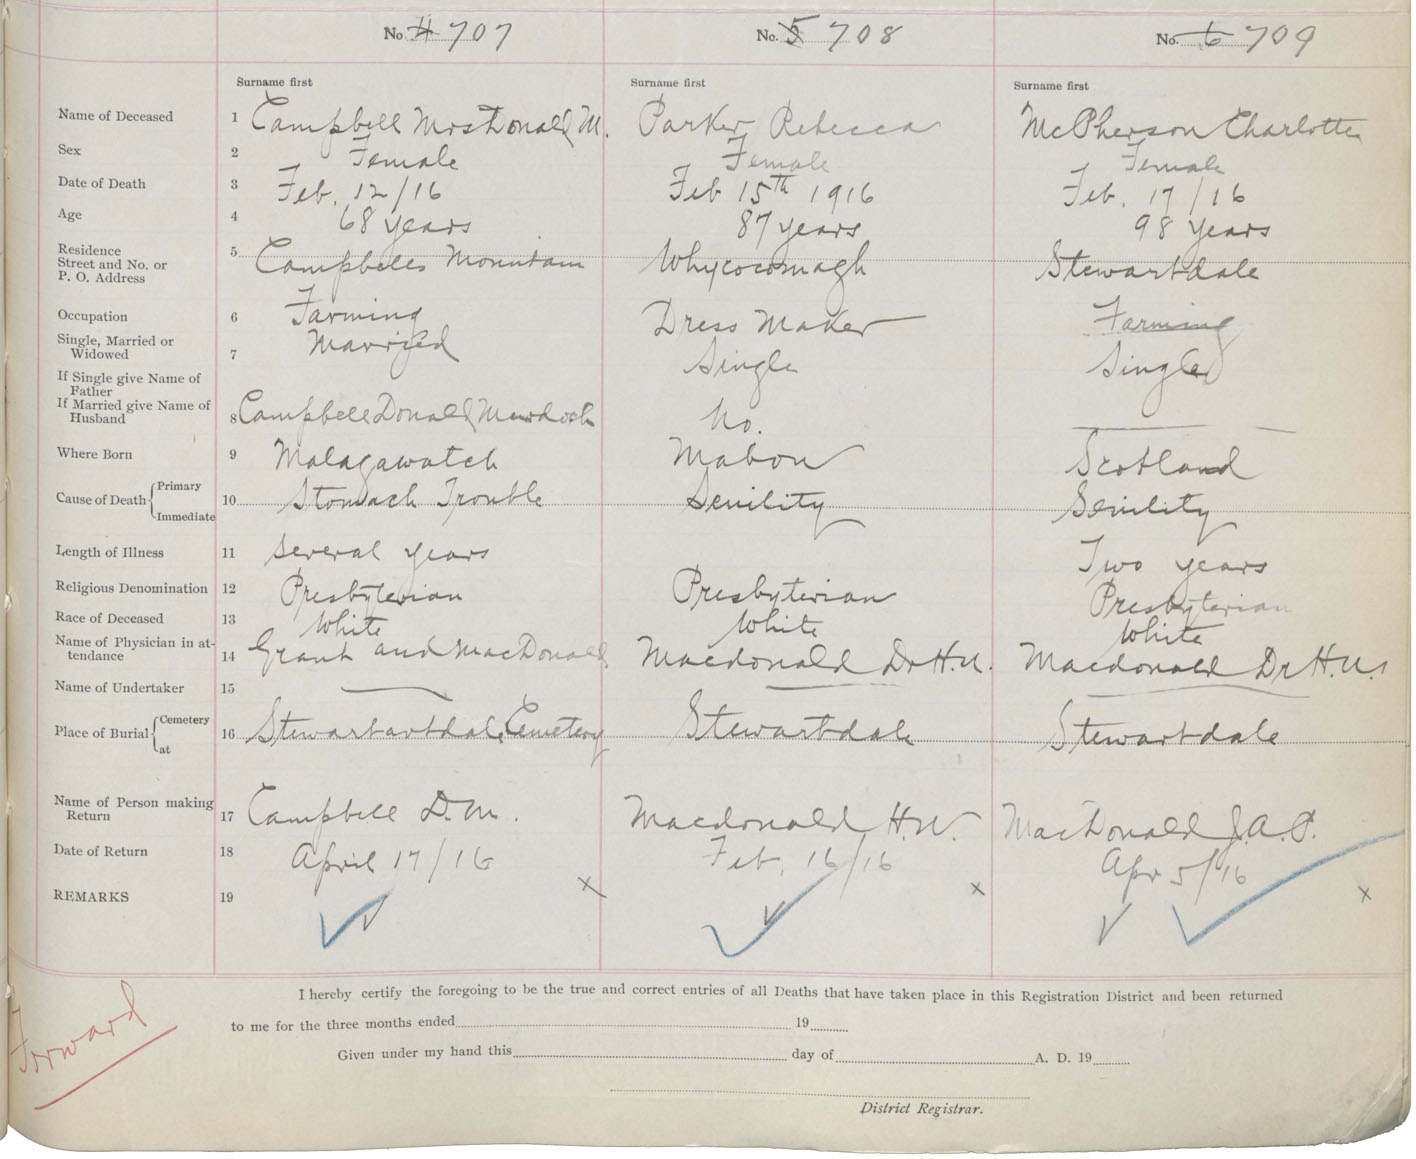 No. 4 707
No. 5 708
No. 6 709
Surname first
Surname first
Surname first
Name of Deceased 1 Campbell Mrs Donald M. Parker Rebecca McPherson Charlotte
Sex 2 Female Female Female
Date of Death 3 Feb. 12/16 Feb 15th 1916 Feb. 17/16
Age 4 68 years 87 years 98 years
Residence
Street and No. or
P. O. Address 5 Campbells Mountain Whycocomagh Stewartdale
Occupation 6 Farming Dress Maker Farming
Single, Married or
Widowed 7 Married Single Single
If Single give Name of
Father
If Married give Name of
Husband 8 Campbell Donald Murdoch No.
Where Born 9 Malagawatch Mabou Scotland
Cause of Death Primary
Immediate 10 Stomach Trouble Senility Senility
Length of Illness 11 Several years Two years
Religious Denomination 12 Presbyterian Presbyterian Presbyterian
Race of Deceased 13 White White White
Name of Physician in at-
tendance 14 Grant and MacDonald Macdonald Dr H.N. Macdonald Dr H.N.
Name of Undertaker 15
Place of Burial Cemetery
at 16 Stewartartdale Cemetery Stewartdale Stewartdale
Name of Person making
Return 17 Campbell D.M. Macdonald H.N. MacDonald J.A.P.
Date of Return 18 April 17/16 Feb. 16/16 Apr 5/16
REMARKS 19
Forward
I hereby certify the foregoing to be the true and correct entries of all Deaths that have taken place in this Registration District and been returned
to me for the three months ended 19
Given under my hand this day of A. D. 19
District Registrar.